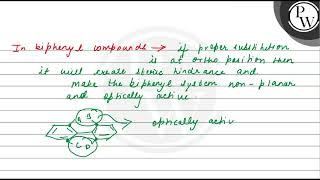 PW
In biphenyl compounds → if proper substitution
is at ortho position then
it will create steric hindrance and
make the biphenyl system non-planar
and optically active.
A B
optically activ
C D